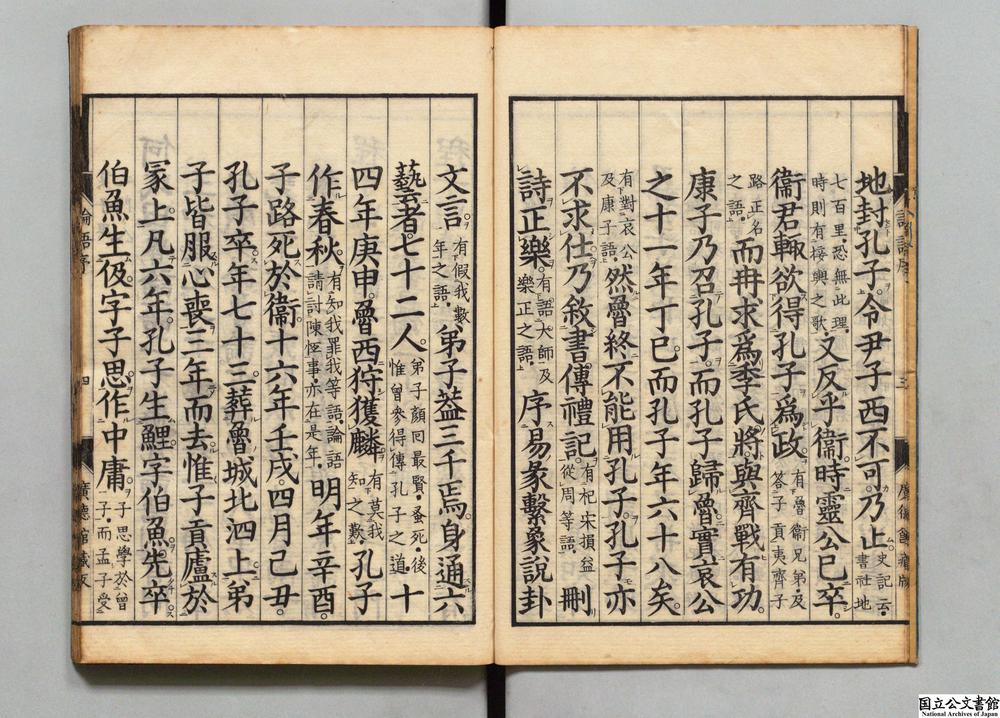 地封孔子。令尹子西不可乃止史記云。書社地
七百里恐無此理。時則有接輿之歌又反乎衞時靈公已卒。
衞君輒欲得孔子爲政。有魯衞兄弟。及答子貢夷齊子
路正名之語。而冉求爲季氏將。與齊戰有功。
康子乃召孔子。而孔子歸魯。實哀公
之十一年丁巳而孔子年六十八矣。
有對哀公及康子語。然魯終不能用孔子。孔子亦
不求仕乃敘書。傳禮記。有杞宋損益從周等語刪
詩正樂。有語大師及樂正之語。序易彖繫象說卦
文言有假我數年之語弟子蓋三千焉。身通六
藝者。七十二人。弟子顏回最賢。蚤死。後惟曾參得傳孔子之道。十
四年庚申。魯西狩獲麟有莫我知之歎孔子
作春秋。有知我罪我等語。論語請討陳恆事。亦在是年。明年辛酉。
子路死於衞。十六年壬戌。四月己丑。
孔子卒。年七十三。葬魯城北泗上。弟
子皆服心喪三年而去。惟子貢廬於
冢上。凡六年。孔子生鯉。字伯魚。先卒
伯魚生伋。字子思。作中庸。子思學於曾子。而孟子受
論語序
四
廣德館藏版
国立公文書館
National Archives of Japan